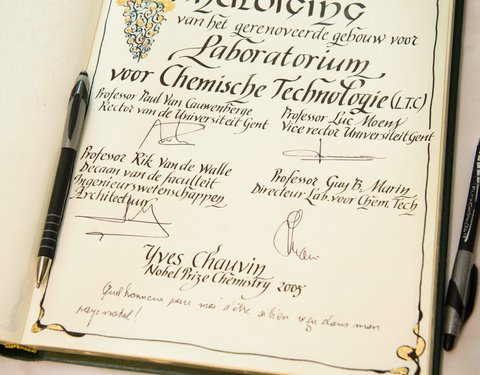 van het gerenoveerde gebouw voor
Laboratorium
voor Chemische Technologie (L.T.C)
Professor Paul Van Cauwenberge
Rector van de Universiteit Gent
Professor Luc Moens
Vice rector Universiteit Gent
Professor Rik Van de Walle
Decaan van de faculteit
Ingenieurswetenschappen
Architectuur
Professor Guy B. Marin
Directeur Lab. voor Chem. Tech
Yves Chauvin
Nobel Prize Chemistry 2005
Quel honneur pour moi d'être si bien reçu dans mon
pays natal!